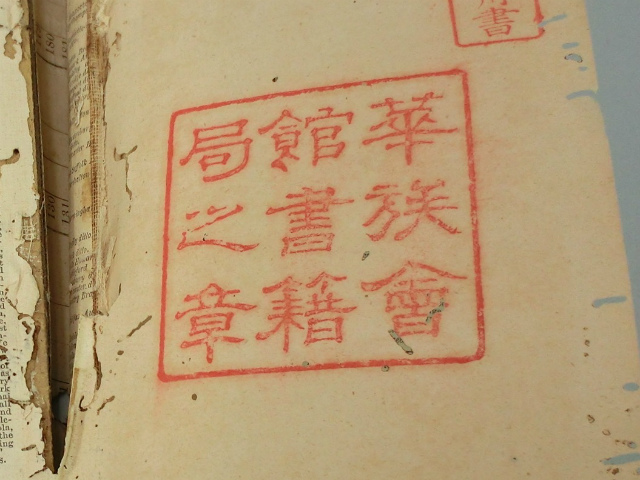 華族會
館書籍
局之章
書